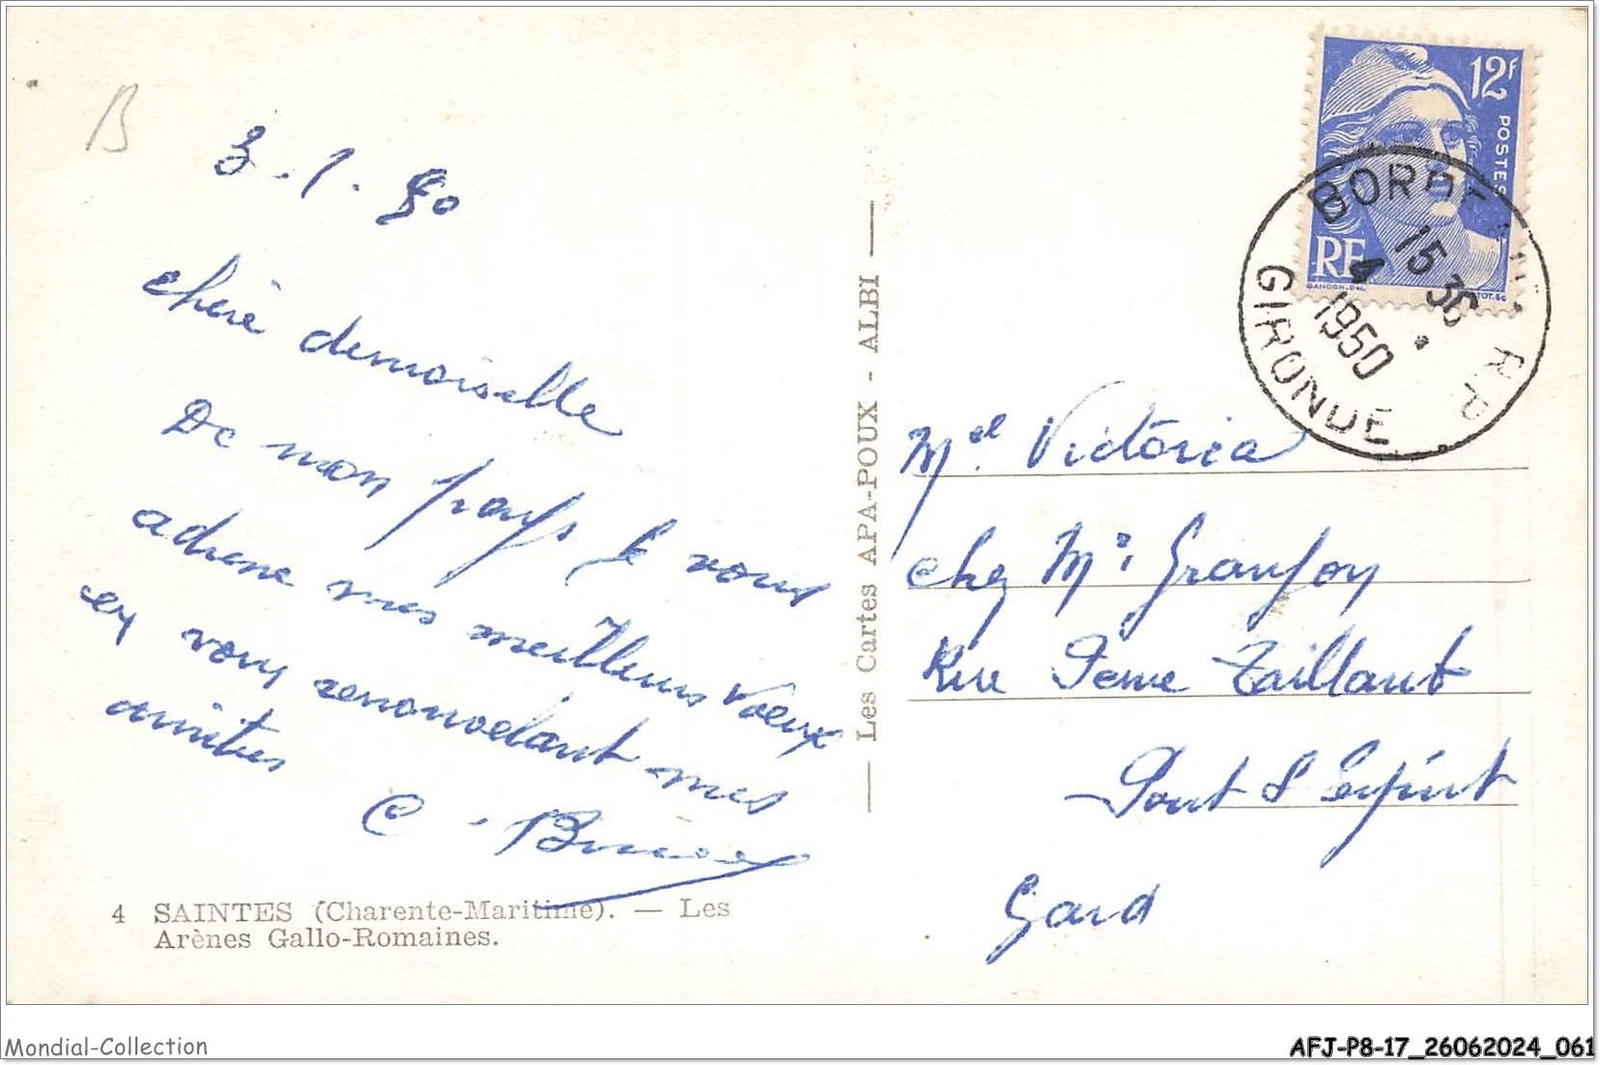 B
3.1.50
chère demoiselle
De mon pays je vous
adresse mes meilleurs voeux
en vous renouvelant mes
amitiés
C.
4 SAINTES (Charente-Maritime). — Les
Arènes Gallo-Romaines.
— Les Cartes APA-POUX - ALBI —
12F
POSTES
RF
GANDON.DEL.
BORDEAUX R.P.
15 30
4
1950
GIRONDE
Mel Victoria
chez Mr Granjon
Rue Taillant
Pont St Esprit
Gard
Mondial-Collection
AFJ-P8-17_26062024_061